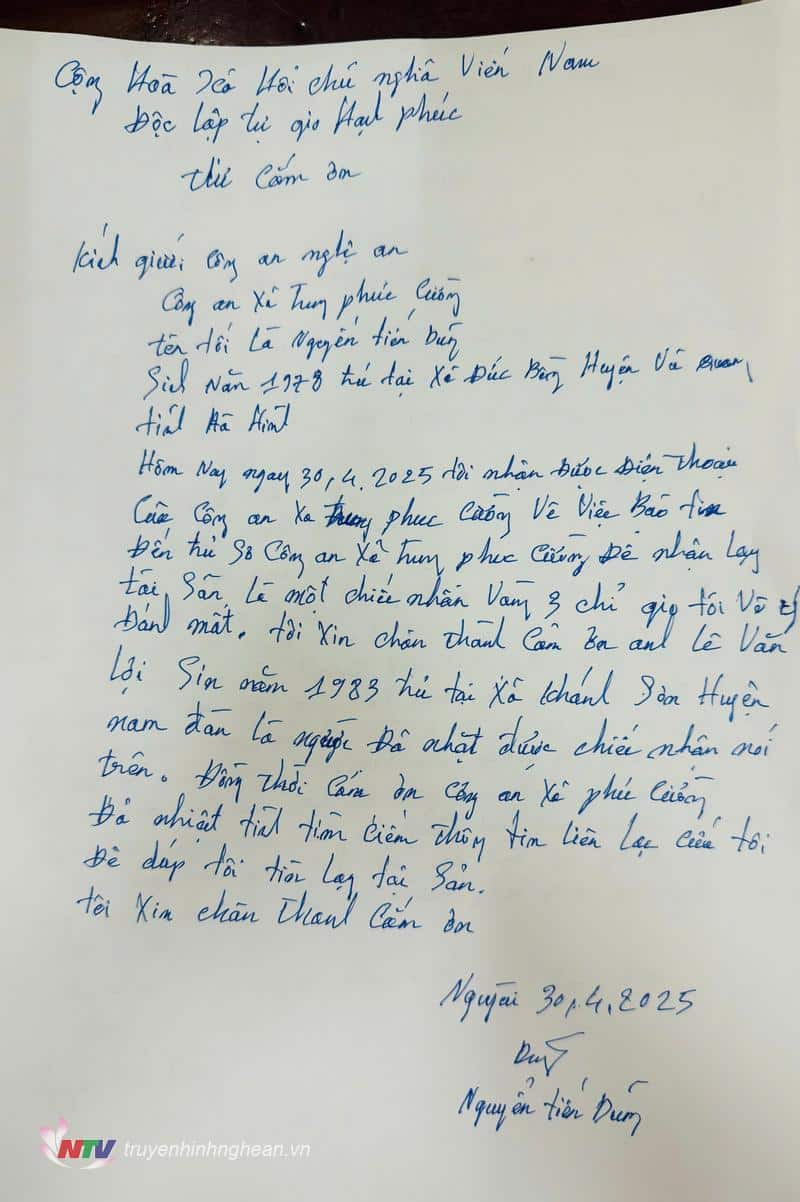 Cộng Hoà Xã Hôi chủ nghiã Viến Nam
Độc lập tự gio Hạnh phúc
thư Cảm ơn
Kích giưới Công an nghệ an
Công an Xã Trung phúc Cường
tên tôi Là Nguyễn tiến Dũng
Sinh Năm 1978 trú tại Xã Đức Bồng Huyện Vũ quang
tỉnh Hà Tĩnh
Hôm Nay ngay 30.4.2025 tôi nhận Được Điện thoại
Của Công an Xa Trung phuc Cường Về Việc Báo tin
Đến trử Sở Công an Xã Trung phuc Cường Để nhận lạy
tài Sản Là một chiếc nhẫn Vàng 3 chỉ gio tôi Vô ý
Đánh mất. tôi Xin chân thành Cảm ơn anh Lê Văn
Lợi Sin năm 1983 trú tại Xã Khánh Sơn Huyện
nam đàn là người Đã nhặt được chiếc nhận nói
trên. Đồng thời Cảm ơn Công an Xã phúc Cường
Đã nhiệt tình tìm kiếm thông tin liên lạc Của tôi
Để dúp tôi tìn lạy tại Sản.
tôi Xin chân thanh Cảm ơn
Ngyài 30.4.2025
Dũng
Nguyễn tiến Dũng
NTV truyenhinhnghean.vn